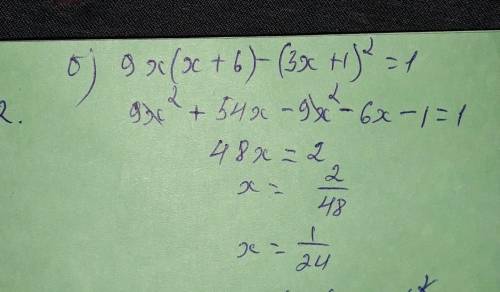 б) 9x(x+6)-(3x+1)²=1
2.
9x²+54x-9x²-6x-1=1
48x=2
x= 2/48
x= 1/24